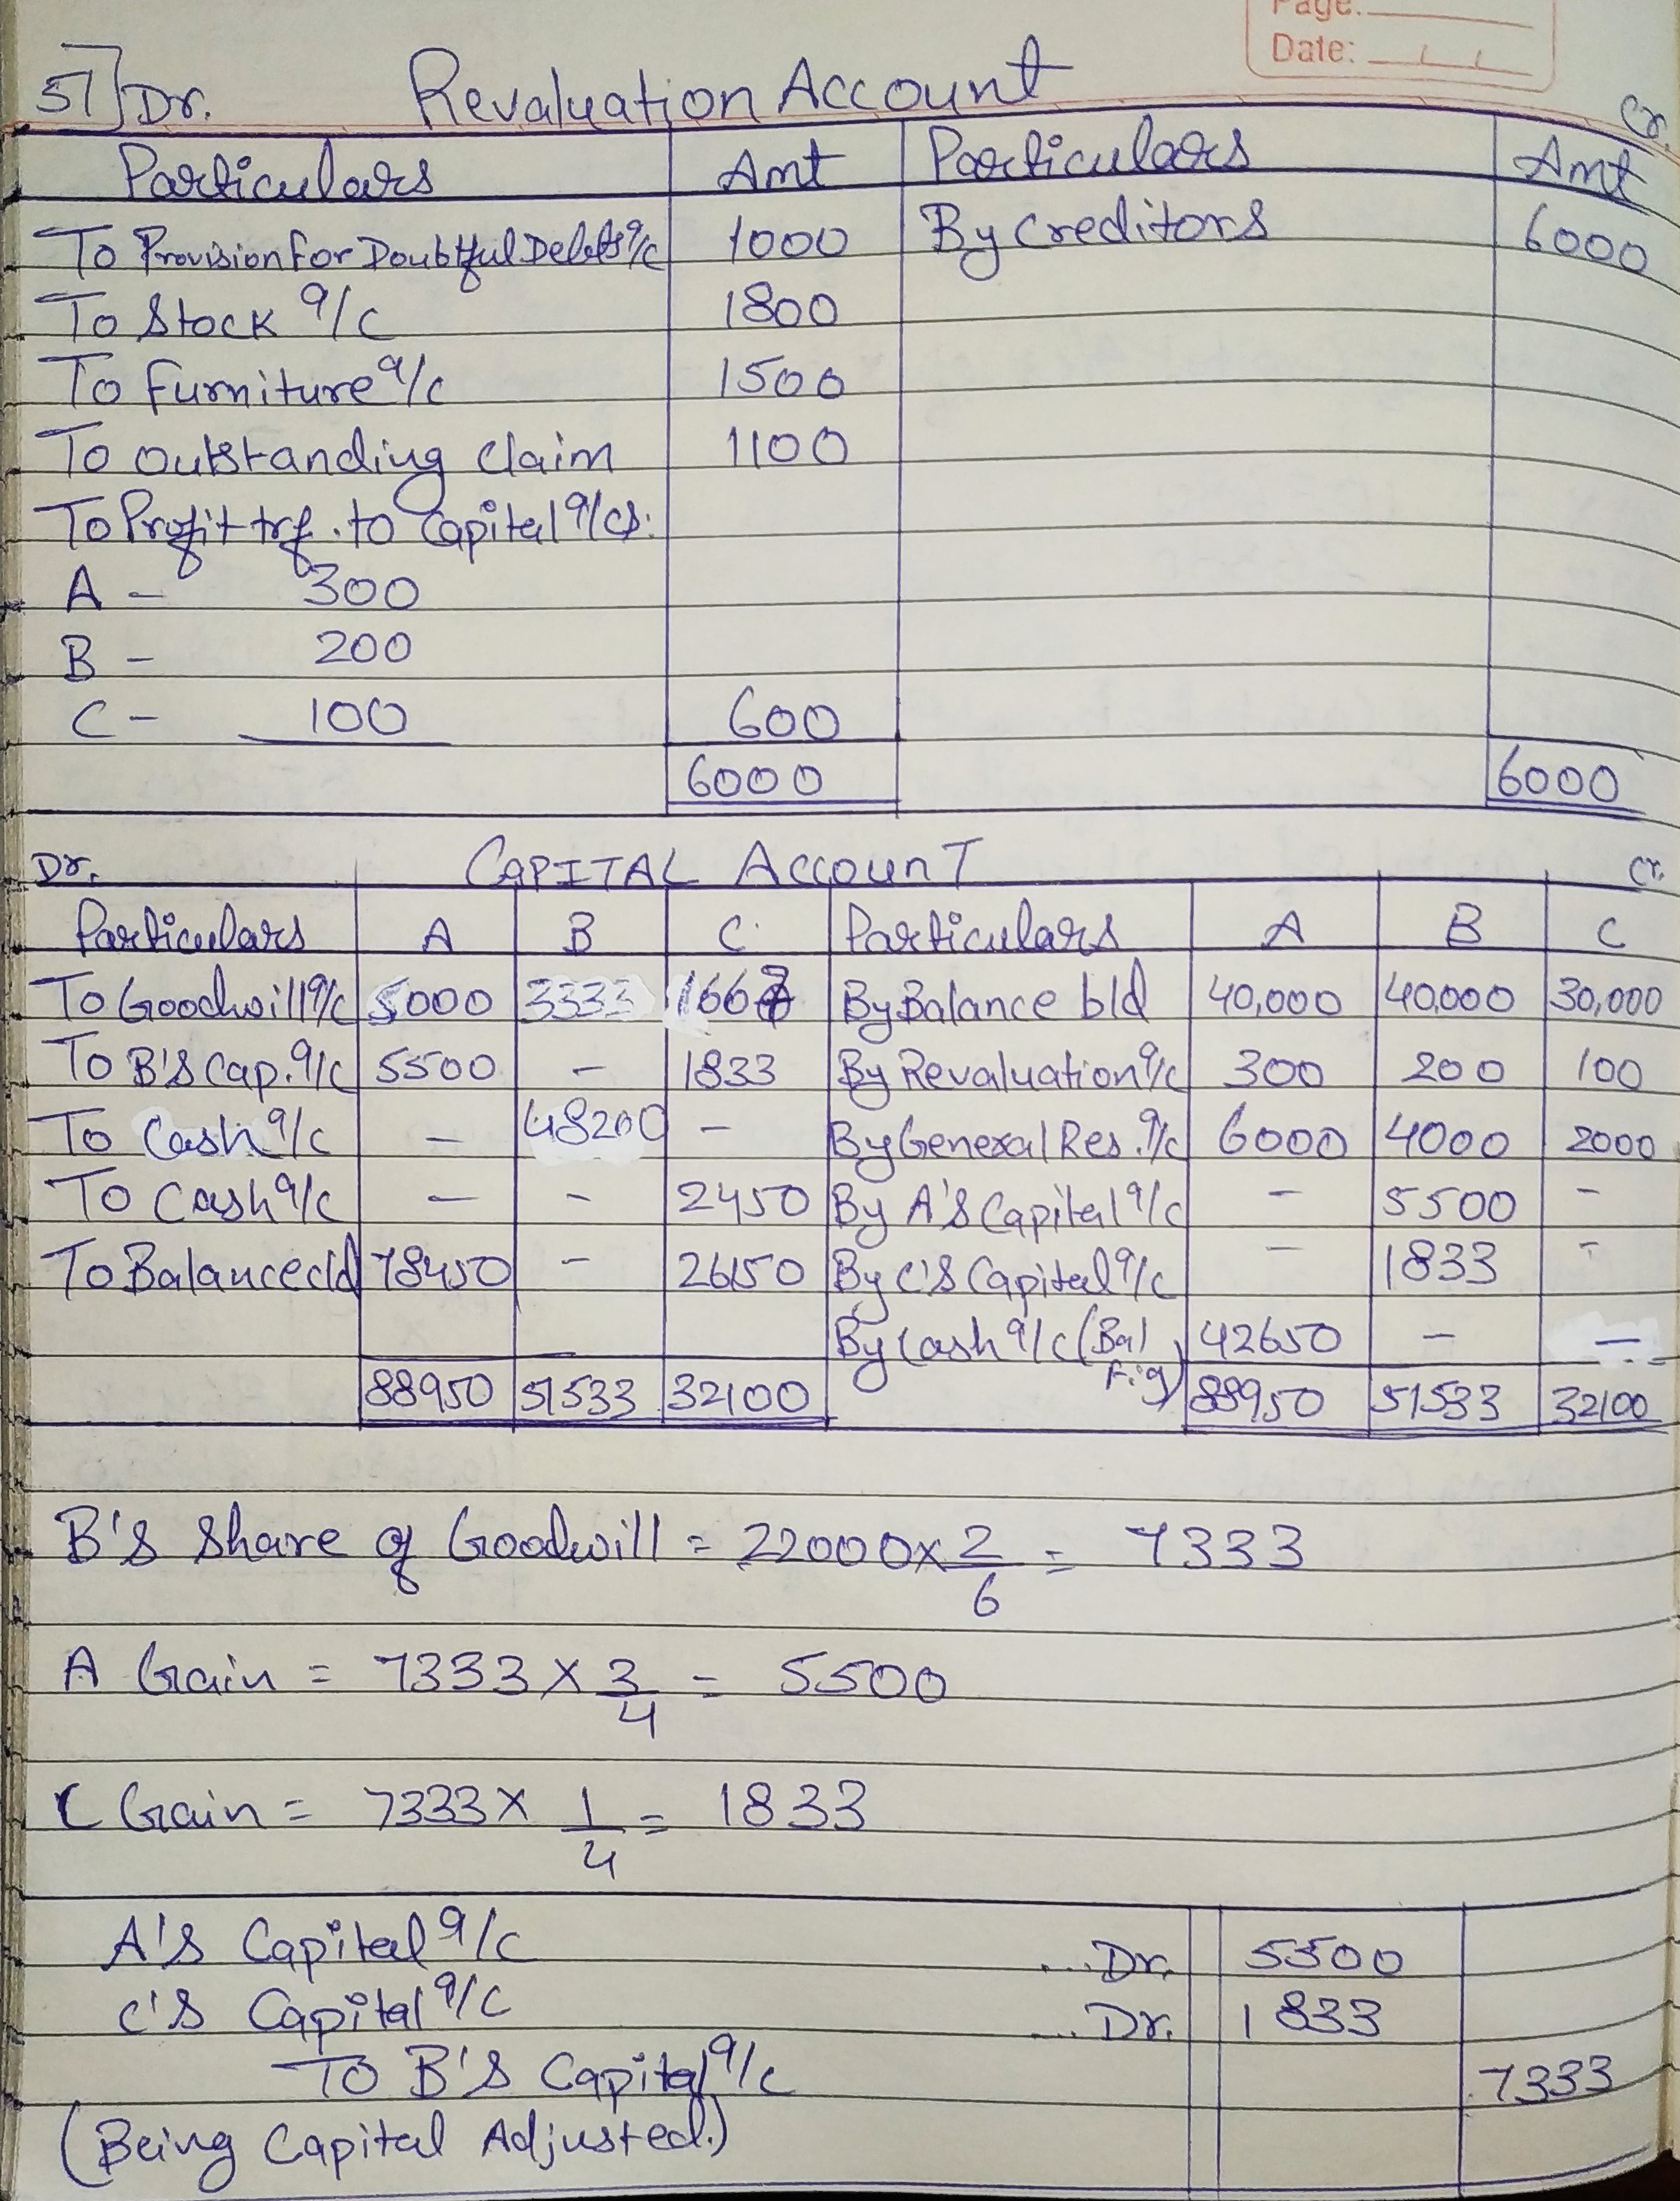 Page:
Date:
57] Dr. Revaluation Account Cr.
Particulars Amt Particulars Amt
To Provision For Doubtful Debts a/c 1000 By Creditors 6000
To Stock a/c 1800
To Furniture a/c 1500
To Outstanding Claim 1100
To Profit trf. to Capital a/cs:
A - 300
B - 200
C - 100 600
6000 6000
Dr. CAPITAL AccounT Cr.
Particulars A B C Particulars A B C
To Goodwill a/c 5000 3333 1667 By Balance b/d 40,000 40,000 30,000
To B's Cap. a/c 5500 - 1833 By Revaluation a/c 300 200 100
To Cash a/c - 48200 - By General Res. a/c 6000 4000 2000
To Cash a/c - - 2450 By A's Capital a/c - 5500 -
To Balance c/d 78450 - 26150 By C's Capital a/c - 1833 -
By Cash a/c (Bal Fig) 42650 - -
88950 51533 32100 88950 51533 32100
B's Share of Goodwill = 22000 × 2/6 = 7333
A Gain = 7333 × 3/4 = 5500
C Gain = 7333 × 1/4 = 1833
A's Capital a/c ... Dr. 5500
C's Capital a/c ... Dr. 1833
To B's Capital a/c 7333
(Being Capital Adjusted.)